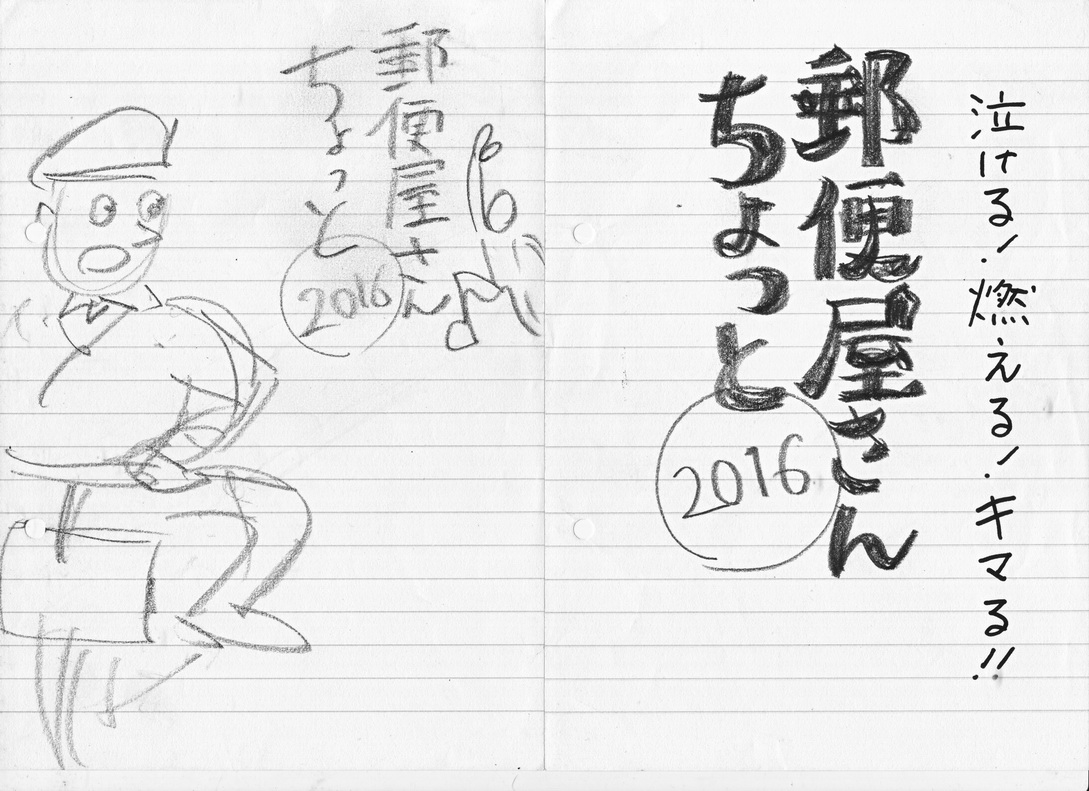 泣ける!燃える!キマる!!
郵便屋さん
ちょっと
2016
郵便屋さん
ちょっと
2016